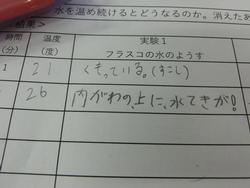 水を温め続けるとどうなるのか。消えたあ
結果>
時間
(分)
温度
(度)
実験1
フラスコの水のようす
1 21 くもっている。(すこし)
26 内がわの上に、水てきが!